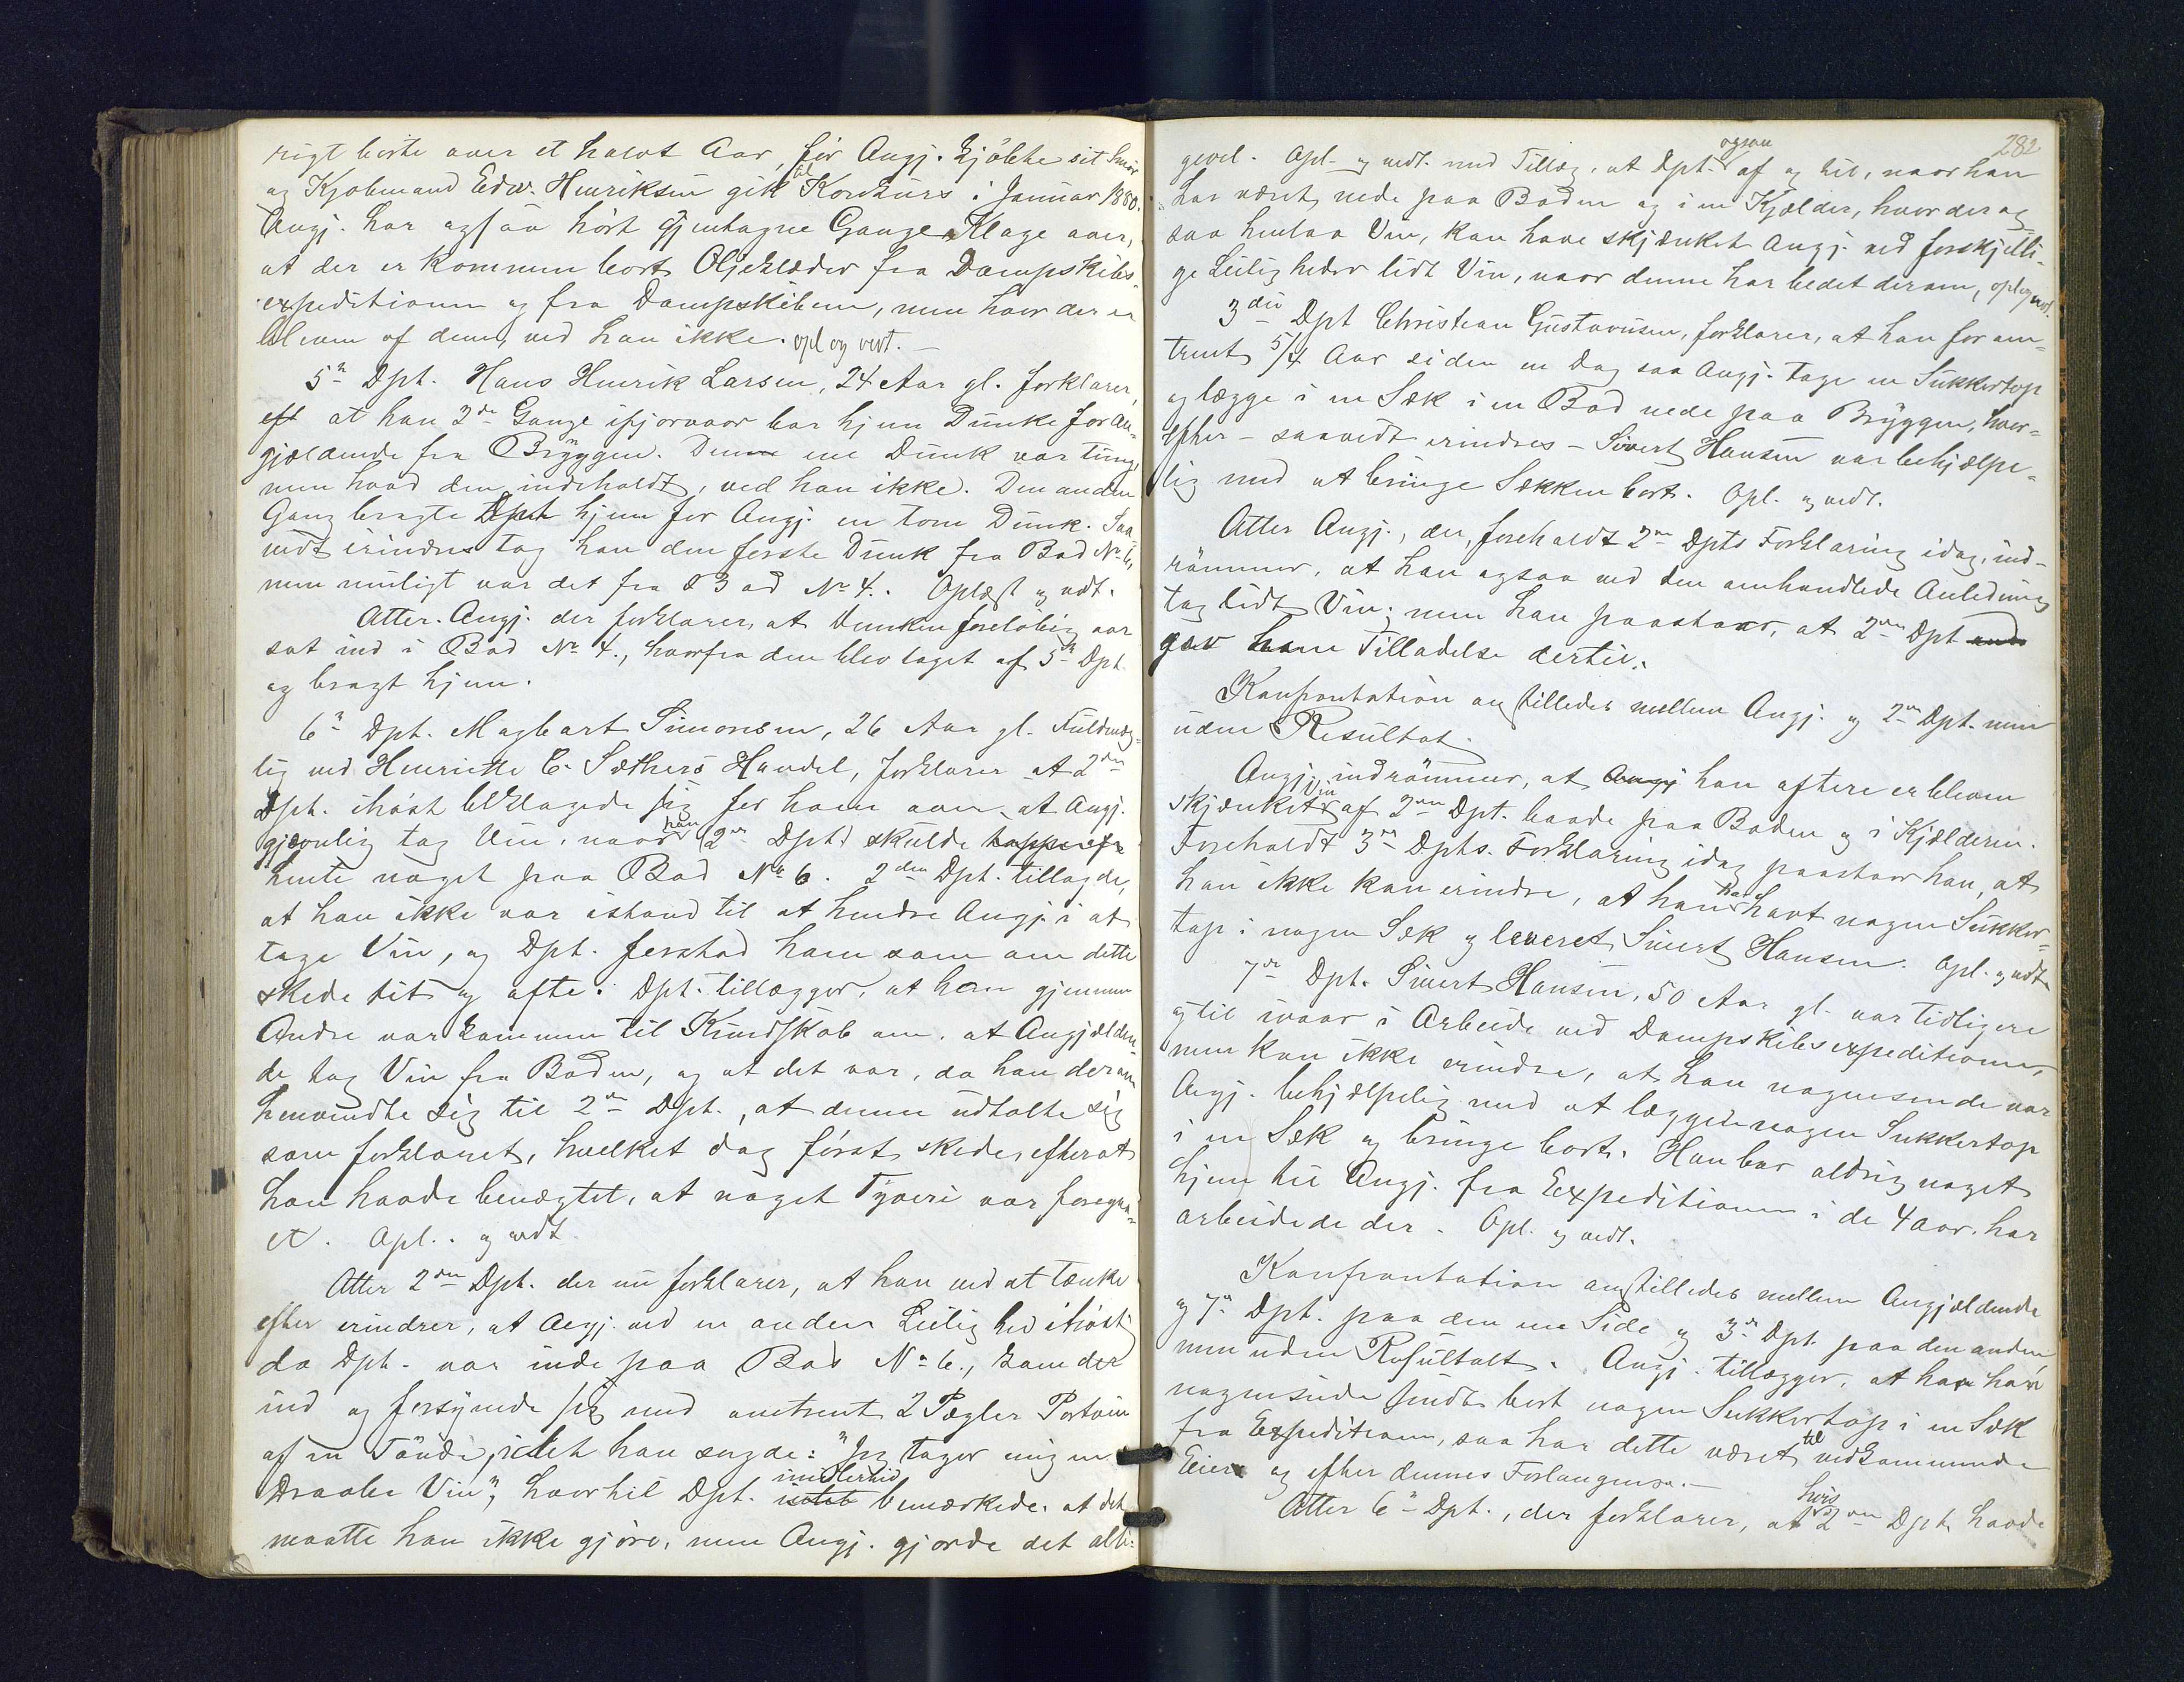 rigt borte over et halvt Aar, før Angj. kjøbte sit Smør
og Kjøbmand Edw. Henriksen gik til Konkurs i Januar 1880.
Angj. har ogsaa hørt gjentagne Gange Klage over,
at der er kommen bort Oljeklæder fra Dampskibs-
expeditionen og fra Dampskibene, men hvor der er
bleven af dem, ved han ikke. opl og vedt. —
5te Dpt. Hans Henrik Larsen, 24 Aar gl. forklarer,
eft at han 2de Gange ifjorvaar bar hjem Dunke for An-
gjældende fra Bryggen. Denne ene Dunk var tung,
men hvad den indeholdt, ved han ikke. Den anden
Gang bragte Dpt hjem for Angj. en tom Dunk. Saa-
vidt erindres tog han den første Dunk fra Bod No 6,
men muligt var det fra Bod No 4. Oplæst og vdt.
Atter Angj. der forklarer, at Dunken foreløbig var
sat ind i Bod No 4., hvorfra den blev taget af 5te Dpt.
og bragt hjem.
6te Dpt. Magbart Simonsen, 26 Aar gl. Fuldmæg-
tig ved Henriette C. Sæthers Handel, forklarer at 2den
Dpt. ihøst beklagede sig for ham over, at Angj.
gjævnlig tog Vin, naar han (2den Dpt) skulde tappe efr
hente noget paa Bod No 6. 2den Dpt. tillagde,
at han ikke var istand til at hindre Angj. i at
tage Vin, og Dpt. forstod ham som om dette
skede tit og ofte. Dpt. tillægger, at han gjennem
Andre var kommen til Kundskab om, at Angjælden-
de tog Vin fra Boden, og at det var, da han derom
henvendte sig til 2den Dpt., at denne udtalte sig
som forklaret, hvilket dog først skede, efterat
han havde benægtet, at noget Tyveri var foregaa-
et. Opl. og vedt
Atter 2den Dpt. der nu forklarer, at han ved at tænke
efter erindrer, at Angj. ved en anden Leilighed ihøst,
da Dpt. var inde paa Bod No 6., kom der
ind og forsynede sig med omtrent 2 Pægler Portvin
af en Tønde, idet han sagde: "Jeg tager mig en
Draabe Vin", hvortil Dpt. idet imidlertid bemærkede, at det
maatte han ikke gjøre, men Angj. gjorde det alli-
282
gevel. Opl. og vedt. med Tillæg, at Dpt. ogsaa af og til, naar han
har været nede paa Boden og i en Kjælder, hvor der og-
saa henlaa Vin, kan have skjænket Angj. ved forskjelli-
ge Leiligheder lidt Vin, naar denne har bedet derom, opl og vedt.
3die Dpt Christian Gustavsen, forklarer, at han for om-
trent 5/4 Aar siden en Dag saa Angj. tage en Sukkertop
og lægge i en Sæk i en Bod nede paa Bryggen, hvor-
efter – saavidt erindres – Sivert Hansen var behjælpe-
lig med at bringe Sækken bort. Opl. og vedt.
Atter Angj., der, foreholdt 2den Dpts Forklaring idag, ind-
rømmer, at han ogsaa ved den omhandlede Anledning
tog lidt Vin; men han paastaar, at 2den Dpt
gav ham Tilladelse dertil.
Konfrontation anstilledes mellem Angj. og 2den Dpt. men
uden Resultat.
Angj. indrømmer, at Angj han oftere er bleven
skjænket Vin af 2den Dpt. baade paa Boden og i Kjælderen.
Foreholdt 3die Dpts. Forklaring idag paastaar han, at
han ikke kan erindre, at han har havt nogen Sukker-
top i nogen Sæk og leveret Sivert Hansen. Opl. og vedt.
7de Dpt. Sivert Hansen, 50 Aar gl. var tidligere
og til ivaar i Arbeide ved Dampskibsexpeditionen,
men kan ikke erindre, at han nogensinde var
Angj. behjælpelig med at lægge nogen Sukkertop
i en Sæk og bringe bort. Han bar aldrig noget
hjem til Angj. fra Expeditionen i de 4 Aar, har
arbeidede der. Opl. og vedt.
Konfrontation anstilledes mellem Angjældende
og 7de Dpt. paa den ene Side og 3die Dpt. paa den anden
men uden Resultatt. Angj. tillægger, at har han
nogensinde sendt bort nogen Sukkertop i en Sæk
fra Expeditionen, saa har dette været til vedkommende
Eier og efter dennes Forlangende. —
Atter 6te Dpt., der forklarer, at hvis 2den Dpt. havde